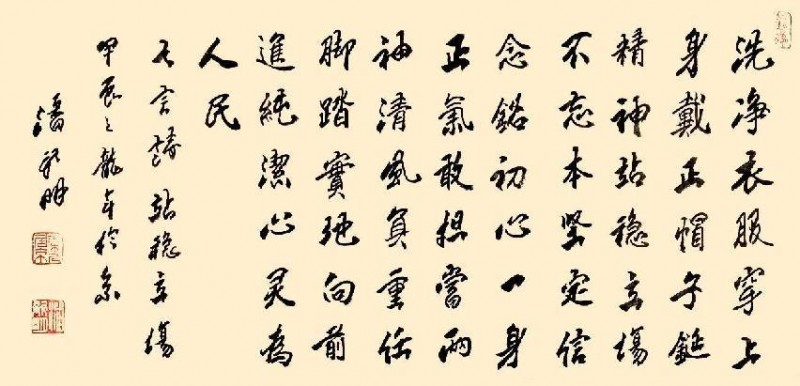 洗净衣服穿上
身戴正帽子挺
精神站稳立場
不忘本坚定信
念銘初心一身
正氣敢担當兩
袖清風負重任
脚踏實地向前
進純潔心灵為
人民
七言詩站稳立場
甲辰之龍年於京
潘